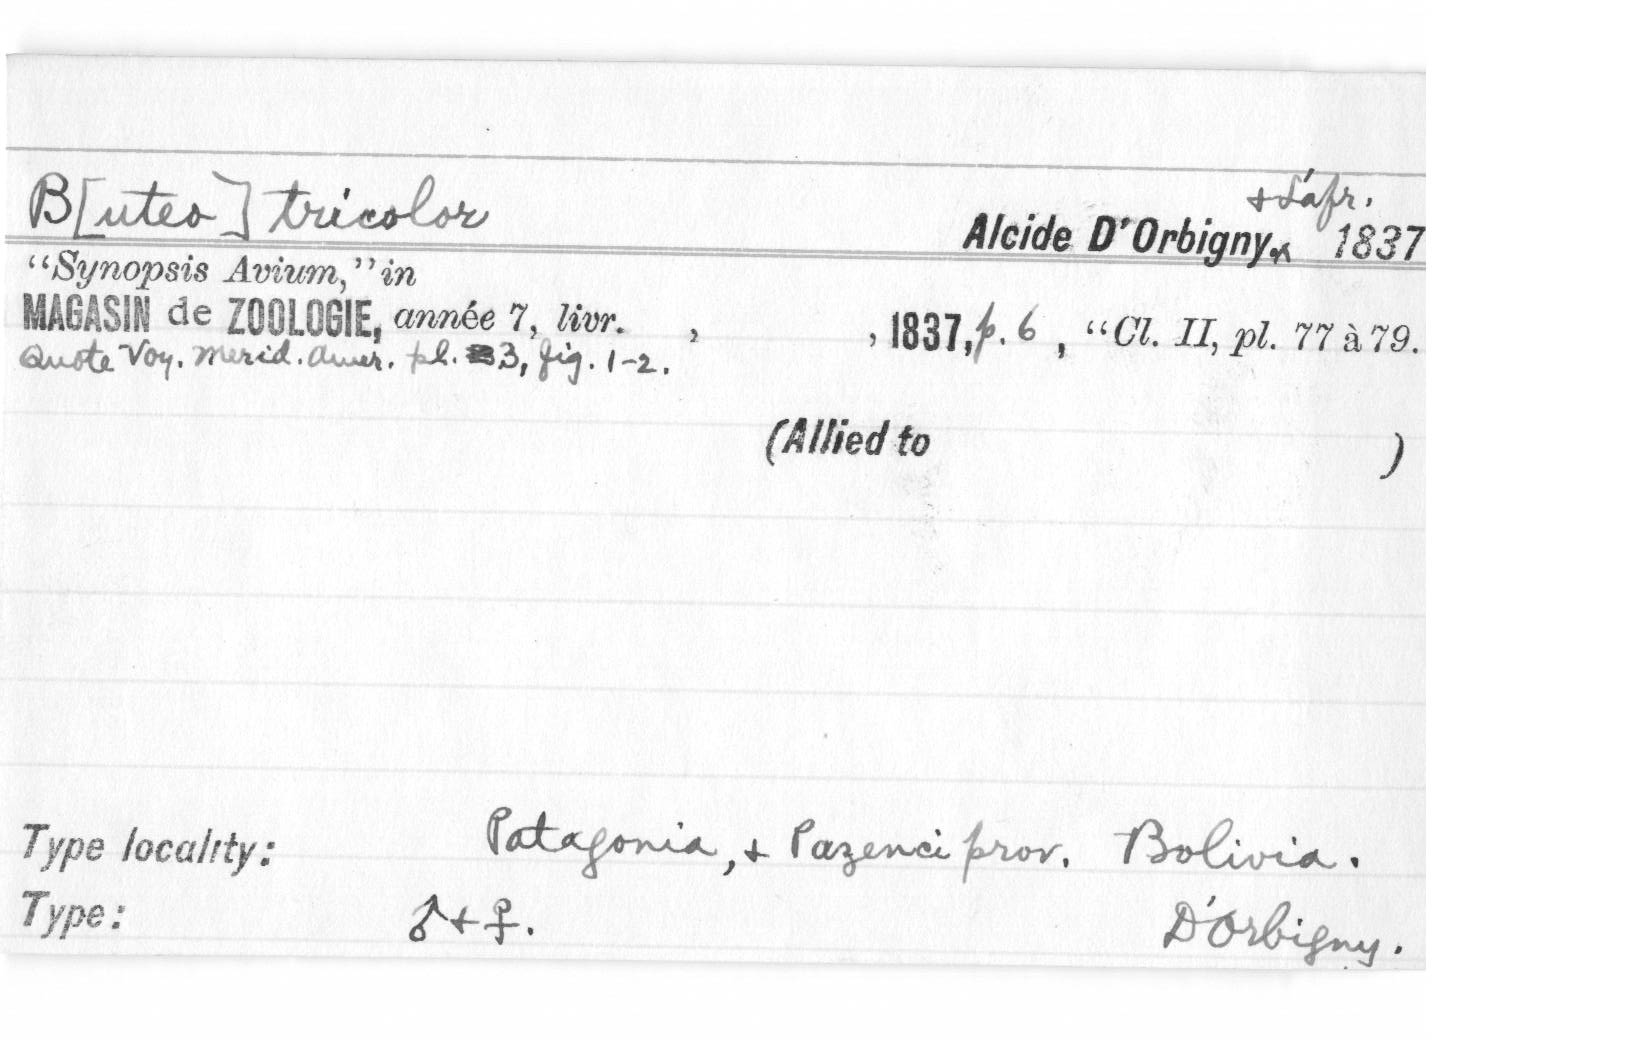 + Láfr.
B[uteo] tricolor Alcide D'Orbigny, 1837
"Synopsis Avium," in
MAGASIN de ZOOLOGIE, année 7, livr. , , 1837, p. 6 , "Cl. II, pl. 77 à 79.
Quote Voy. Merid. Amer. pl. 3, fig. 1-2.
(Allied to )
Type locality: Patagonia, + Pazenci prov. Bolivia.
Type: ♂ + ♀. D'Orbigny.